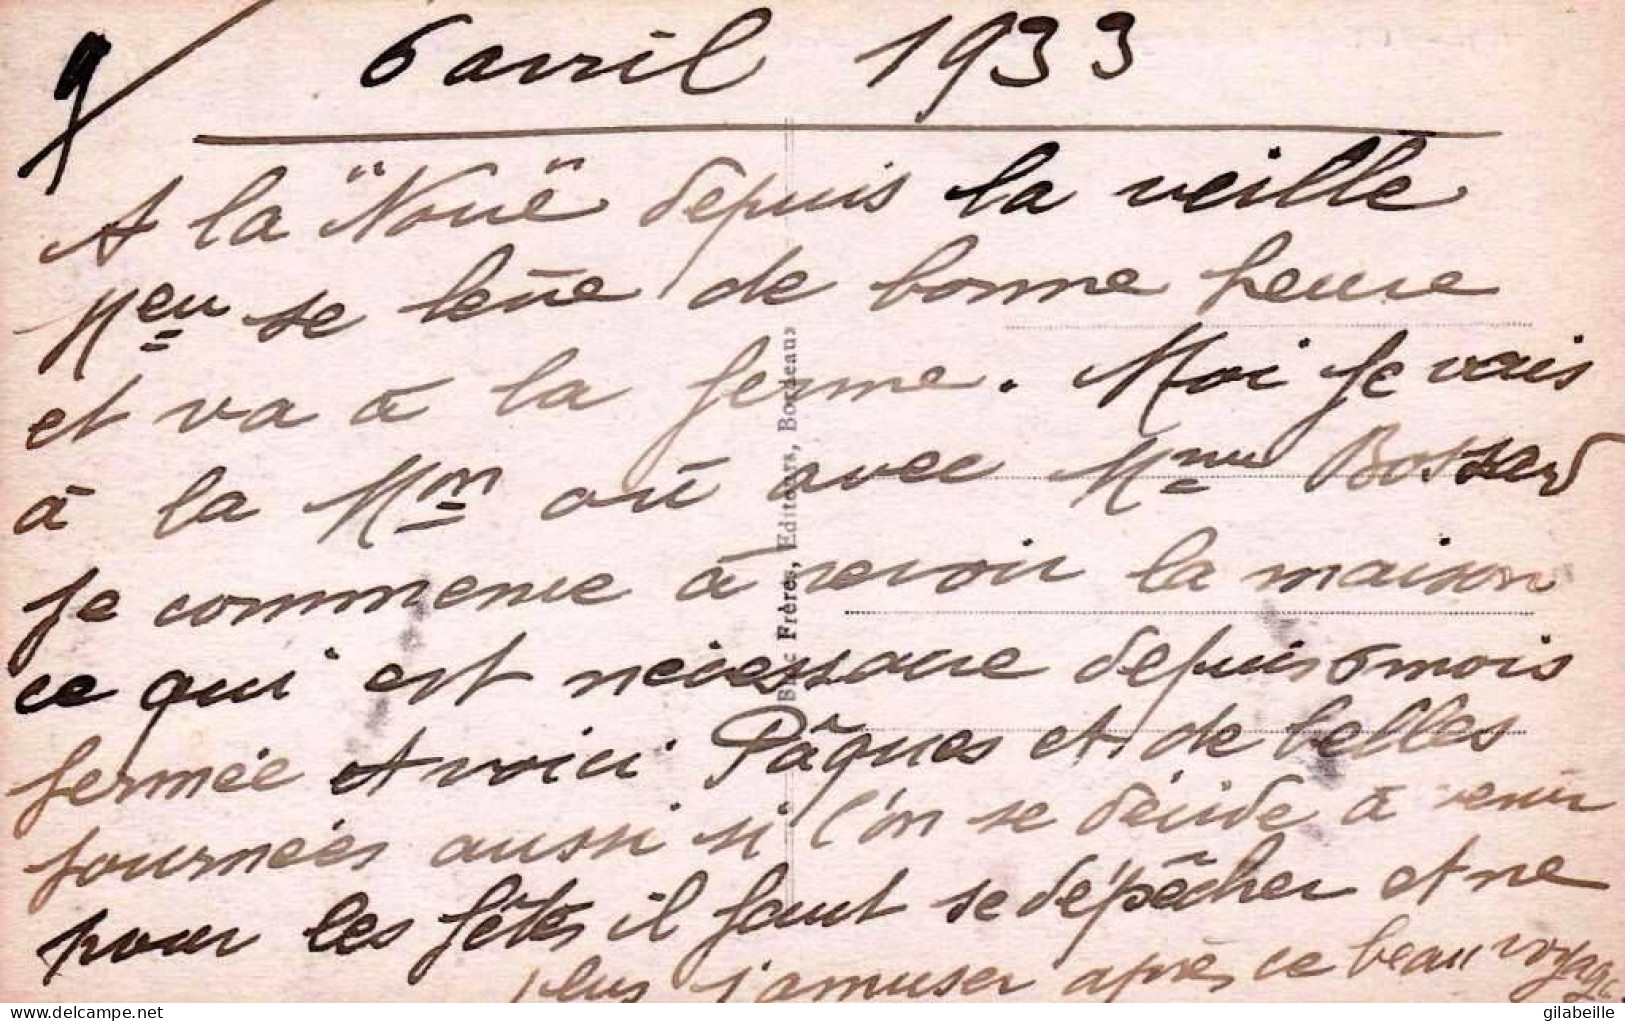 9/ 6 avril 1933
A la "Nouë" depuis la veille
Meu se lève de bonne heure
et va à la ferme. Moi je vais
à la Mon où avec Mme Bossard
je commence à revoir la maison
ce qui est nécessaire depuis 6 mois
fermée et voici Pâques et de belles
journées aussi si l'on se décide à venir
pour les fêtes il faut se dépêcher et ne
plus s'amuser après ce beau voyage.
Bloc Frères, Editeurs, Bordeaux
delcampe.net
gilabeille